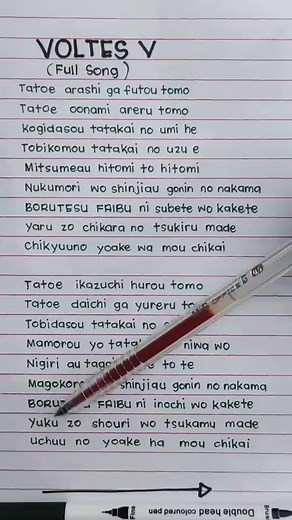 VOLTES V
(Full Song)
Tatoe arashi ga futou tomo
Tatoe oonami areru tomo
Kogidasou tatakai no umi he
Tobikomou tatakai no uzu e
Mitsumeau hitomi to hitomi
Nukumori wo shinjiau gonin no nakama
BORUTESU FAIBU ni subete wo kakete
Yaru zo chikara no tsukiru made
Chikyuuno yoake wa mou chikai
Tatoe ikazuchi hurou tomo
Tatoe daichi ga yureru
Tobidasou tatakai no
Mamorou yo niwa wo
Nigiri au te to te
shinjiau gonin no nakama
FAIBU ni inochi wo kakete
Yuku zo shouri wo tsukamu made
uchuu no yoake ha mou chikai
Double head coloured pen